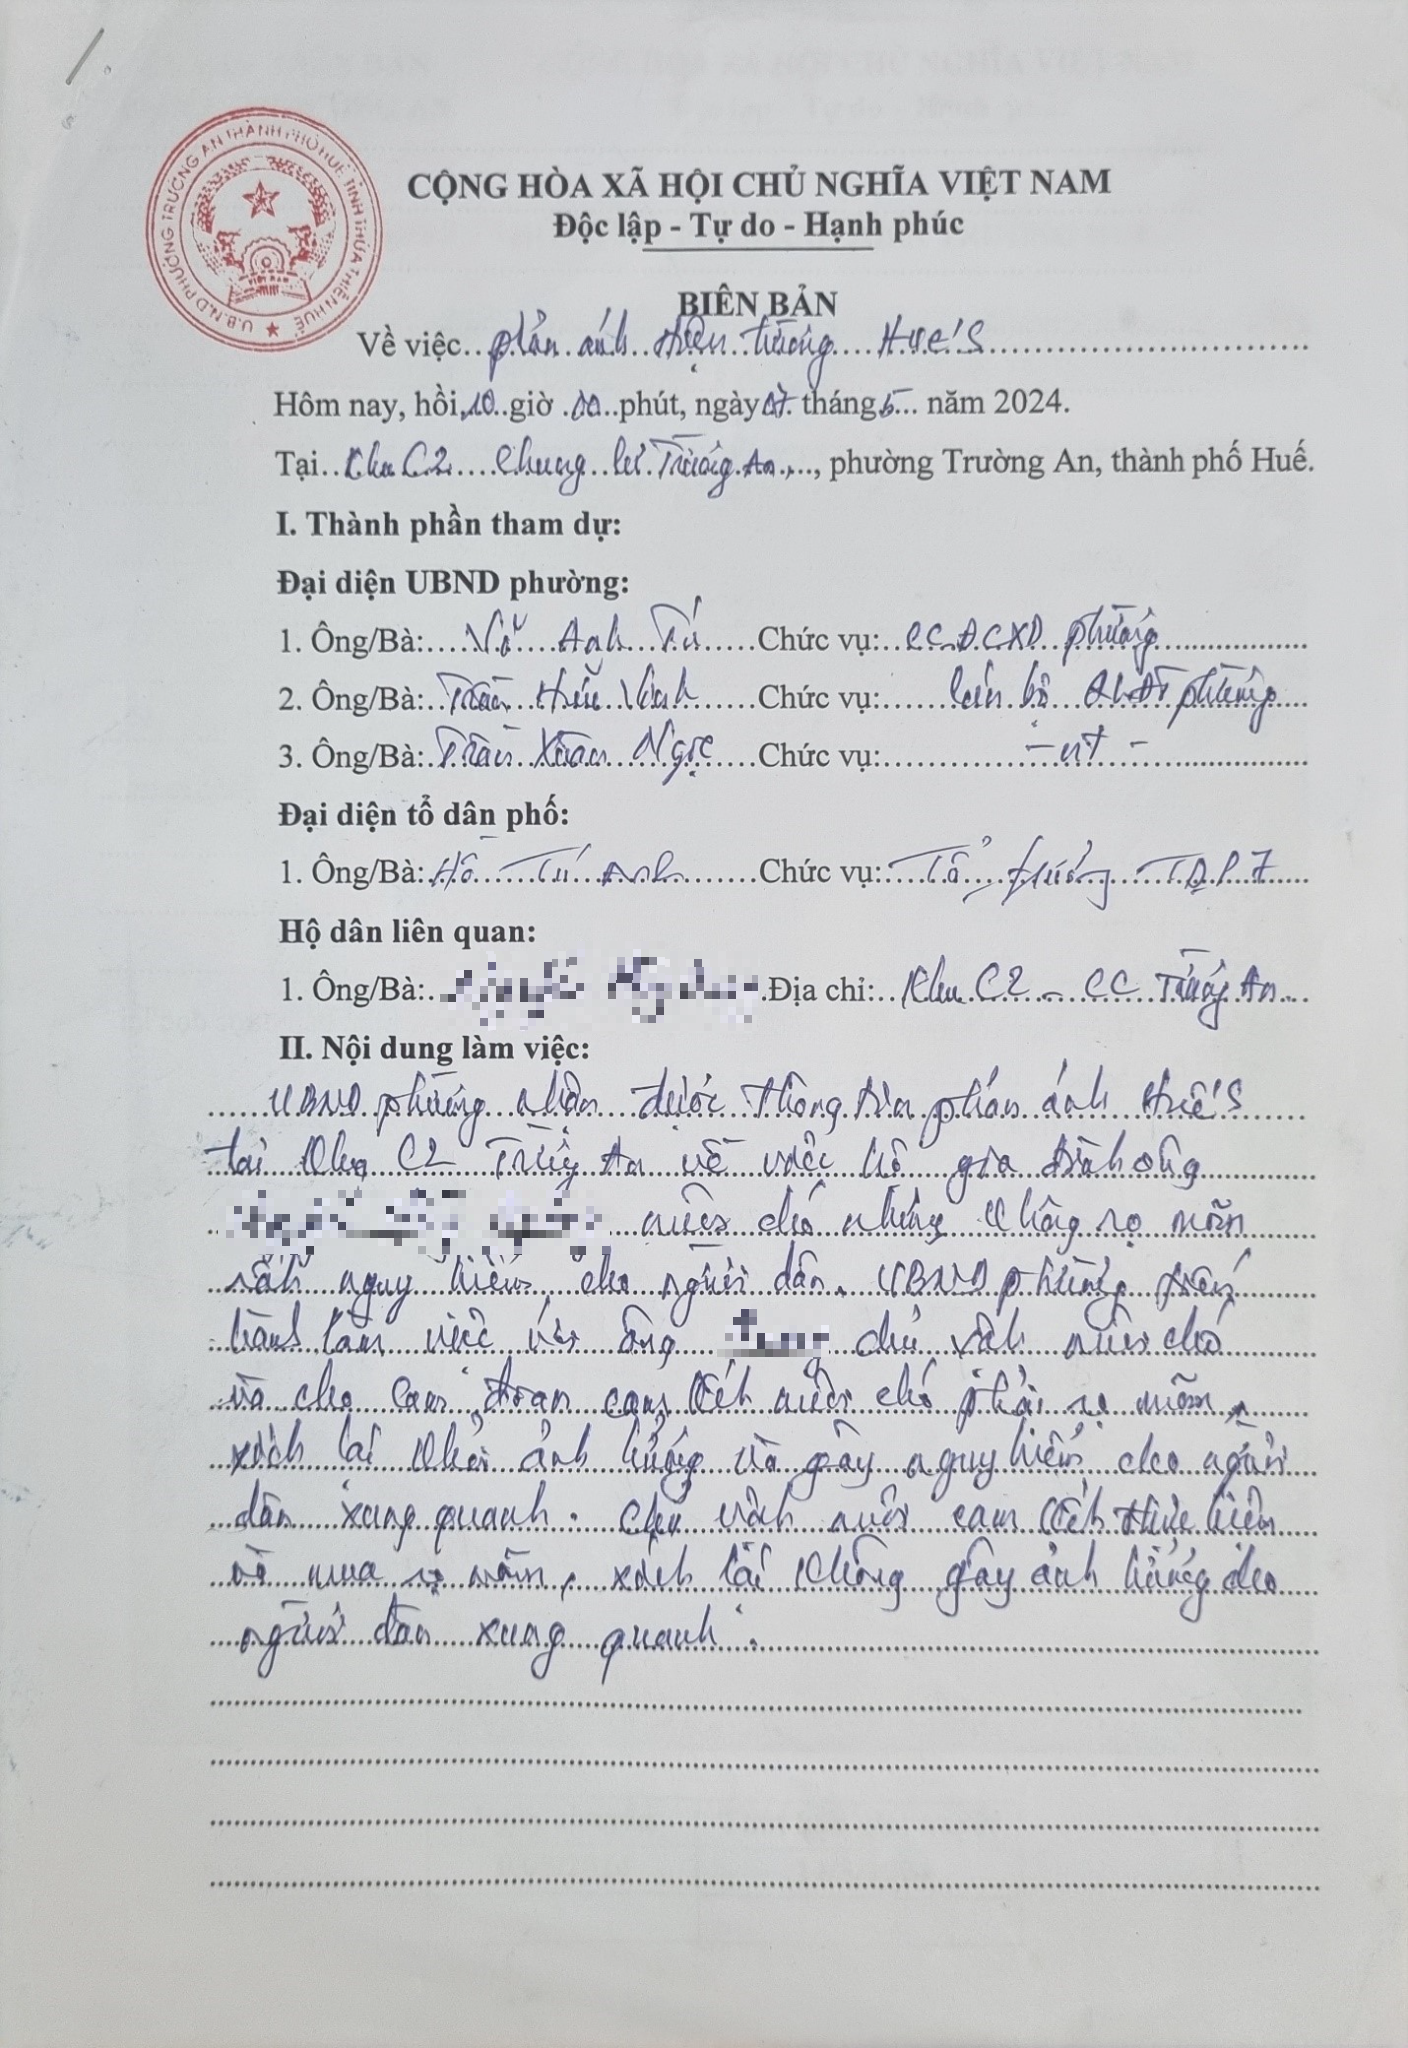 U.B.N.D PHƯỜNG TRƯỜNG AN THÀNH PHỐ HUẾ TỈNH THỪA THIÊN HUẾ
VIỆT NAM
CỘNG HÒA XÃ HỘI CHỦ NGHĨA VIỆT NAM
Độc lập - Tự do - Hạnh phúc
BIÊN BẢN
Về việc phản ánh hiện trường Hue'S
Hôm nay, hồi 10 giờ 00 phút, ngày 07 tháng 5 năm 2024.
Tại Khu C2 Chung cư Trường An, phường Trường An, thành phố Huế.
I. Thành phần tham dự:
Đại diện UBND phường:
1. Ông/Bà: Võ Anh Tú Chức vụ: CC ĐCXD phường
2. Ông/Bà: Trần Hữu Chức vụ: cán bộ phường
3. Ông/Bà: Trần Xuân Ngọc Chức vụ: - nt -
Đại diện tổ dân phố:
1. Ông/Bà: Hồ Tú Anh Chức vụ: Tổ trưởng TDP 7
Hộ dân liên quan:
1. Ông/Bà: Địa chỉ: Khu C2 - CC Trường An
II. Nội dung làm việc:
UBND phường nhận được thông tin phản ánh Huế'S
tại Khu C2 Trường An về việc hộ gia đình ông
nuôi chó nhưng không rọ mõm
rất nguy hiểm cho người dân. UBND phường tiến
hành làm việc với ông chủ vật nuôi chó
và cho cam đoan cam kết nuôi chó phải rọ mõm,
xích lại khỏi ảnh hưởng và gây nguy hiểm cho người
dân xung quanh. Chủ vật nuôi cam kết thực hiện
và mua rọ mõm, xích lại không gây ảnh hưởng cho
người dân xung quanh.